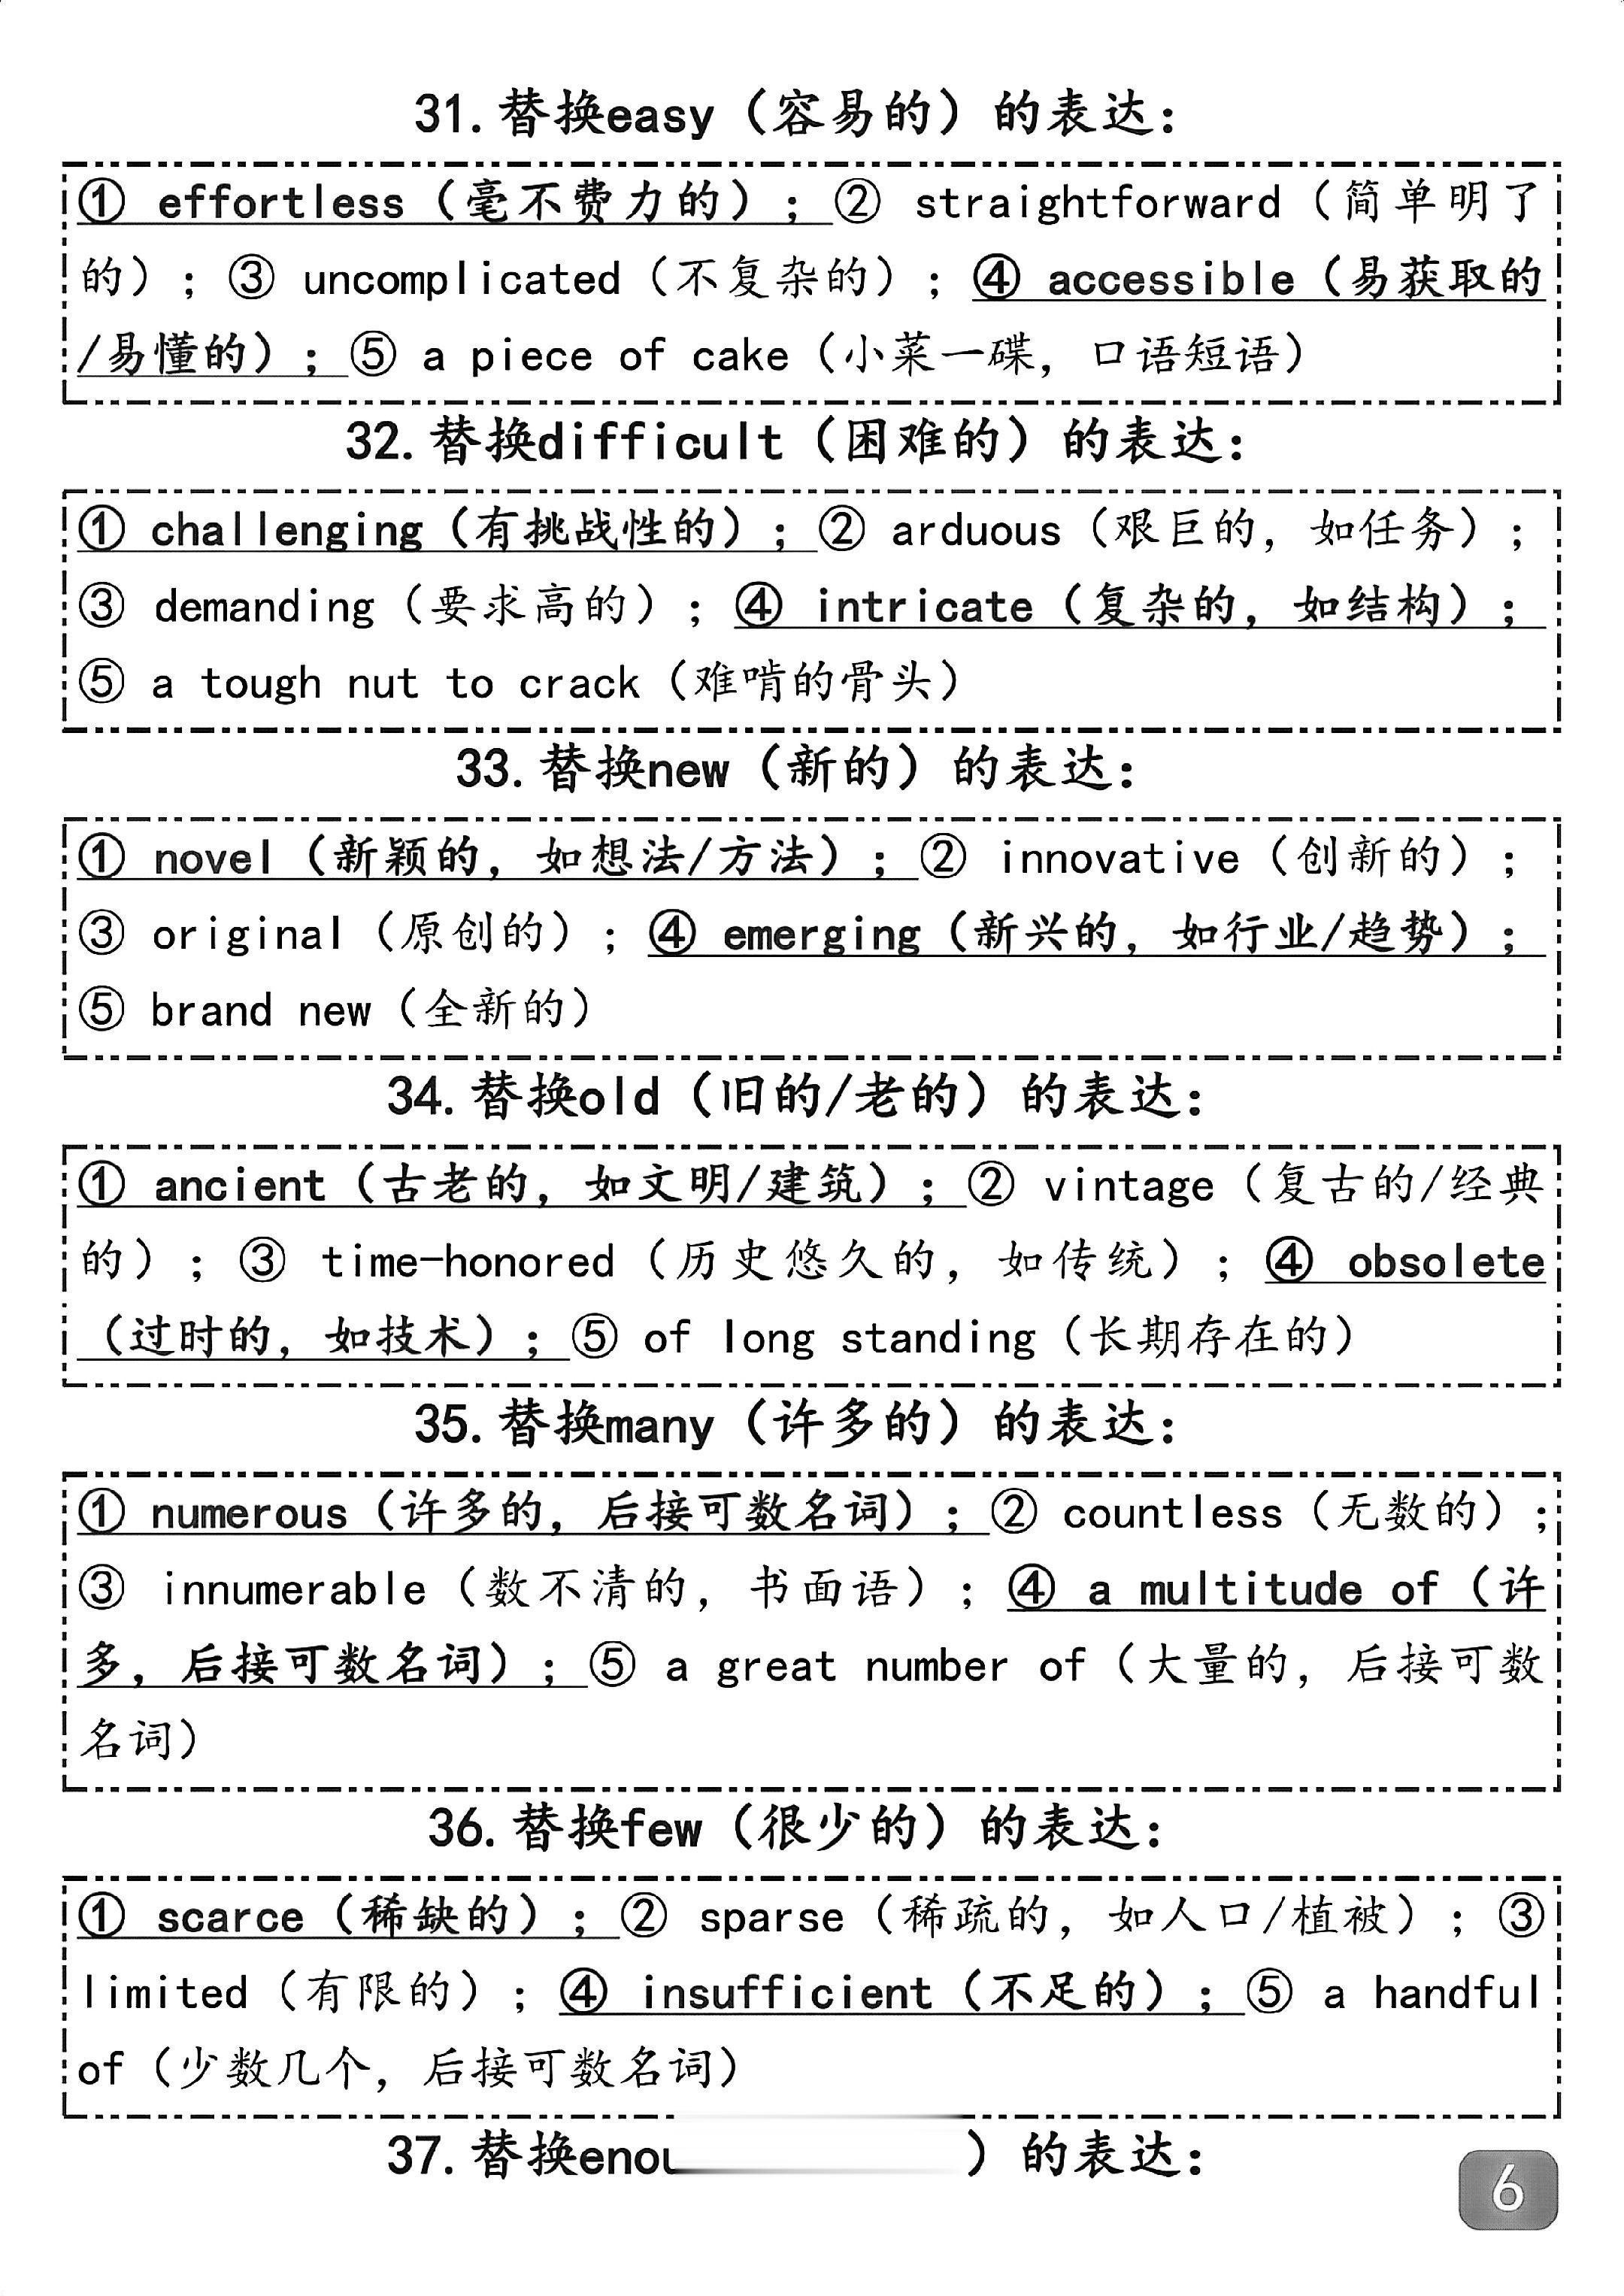 31. 替换easy（容易的）的表达：
① effortless（毫不费力的）；② straightforward（简单明了
的）；③ uncomplicated（不复杂的）；④ accessible（易获取的
/易懂的）；⑤ a piece of cake（小菜一碟，口语短语）
32. 替换difficult（困难的）的表达：
① challenging（有挑战性的）；② arduous（艰巨的，如任务）；
③ demanding（要求高的）；④ intricate（复杂的，如结构）；
⑤ a tough nut to crack（难啃的骨头）
33. 替换new（新的）的表达：
① novel（新颖的，如想法/方法）；② innovative（创新的）；
③ original（原创的）；④ emerging（新兴的，如行业/趋势）；
⑤ brand new（全新的）
34. 替换old（旧的/老的）的表达：
① ancient（古老的，如文明/建筑）；② vintage（复古的/经典
的）；③ time-honored（历史悠久的，如传统）；④ obsolete
（过时的，如技术）；⑤ of long standing（长期存在的）
35. 替换many（许多的）的表达：
① numerous（许多的，后接可数名词）；② countless（无数的）；
③ innumerable（数不清的，书面语）；④ a multitude of（许
多，后接可数名词）；⑤ a great number of（大量的，后接可数
名词）
36. 替换few（很少的）的表达：
① scarce（稀缺的）；② sparse（稀疏的，如人口/植被）；③
limited（有限的）；④ insufficient（不足的）；⑤ a handful
of（少数几个，后接可数名词）
37. 替换enou ）的表达：
6